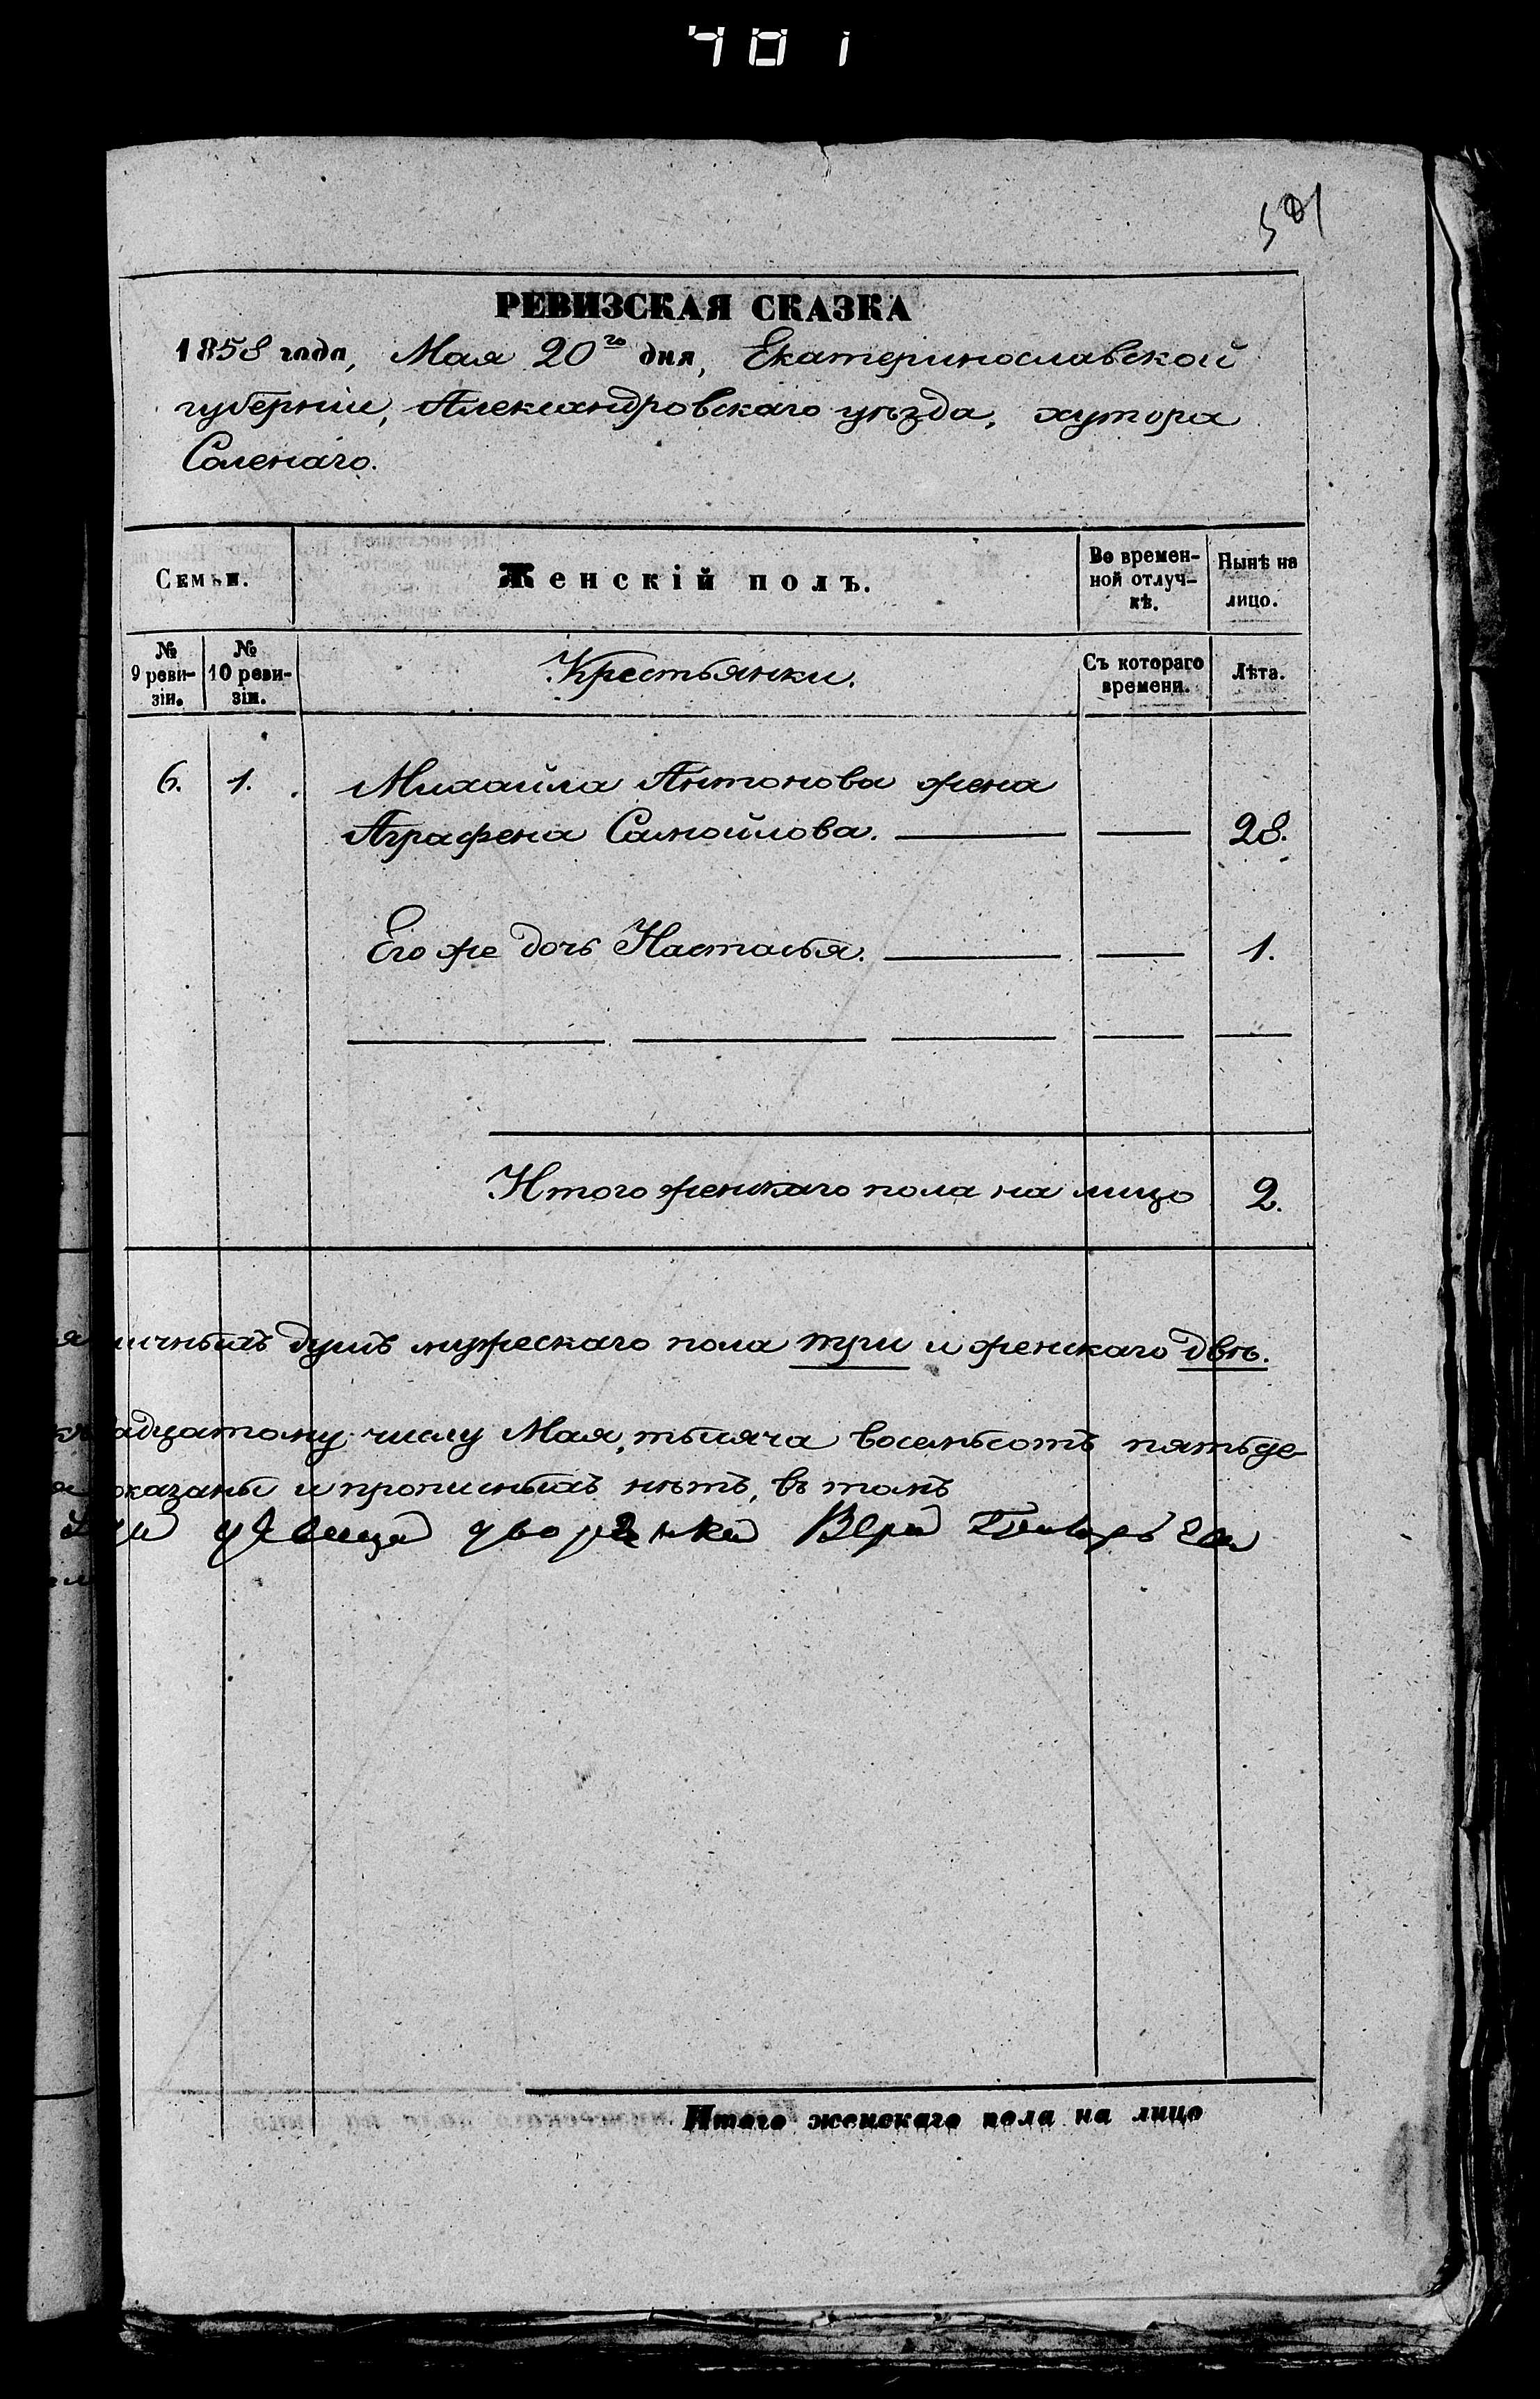 501
РЕВИЗСКАЯ СКАЗКА
1858 года, Мая 20го дня, Екатеринославской
губерніи, Александровскаго уѣзда, хутора
Соленаго.
Семьи.
Женскій полъ.
Во времен-
ной отлуч-
кѣ.
Нынѣ на
лицо.
№
9 реви-
зіи.
№
10 реви-
зіи.
Крестьянки.
Съ котораго
времени.
Лѣта.
6. 1. Михайла Антонова жена
Аграфена Самойлова. 28.
Его же дочь Настасья. 1.
Итого женскаго пола на лицо 2.
личныхъ душъ мужескаго пола три и женскаго двѣ.
адцатому числу Мая, тысяча восемьсотъ пятьде-
оказаны и прописныхъ нѣтъ, въ томъ
дѣвица дворянка Вера
Итого женскаго пола на лицо